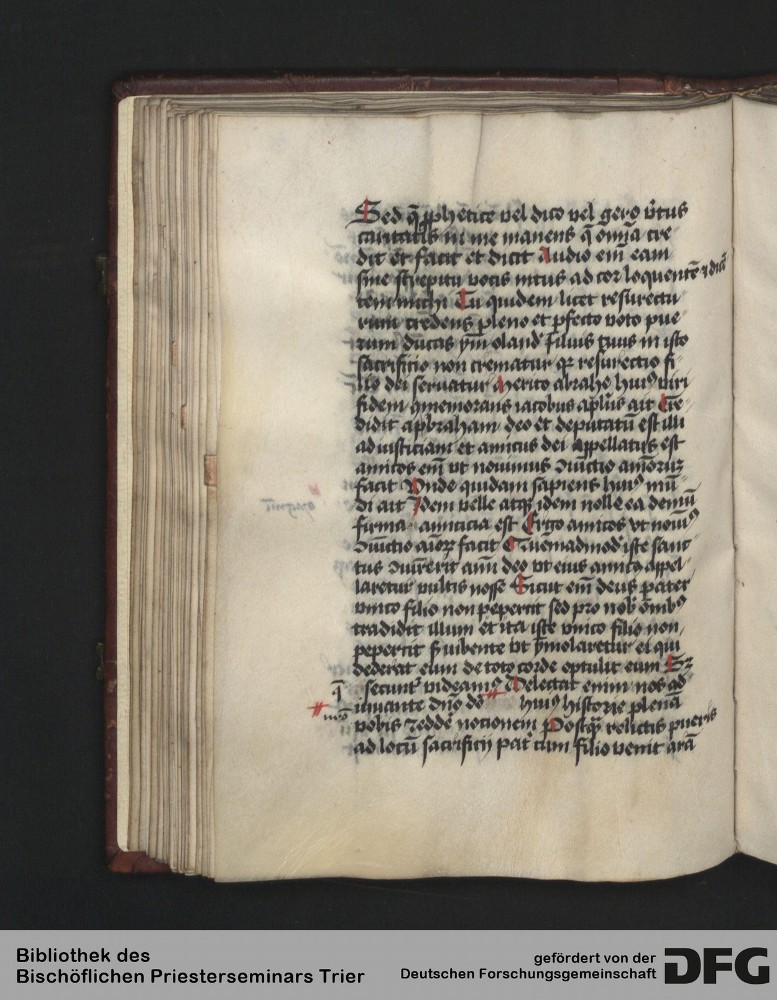 Sed q̄ ꝓphetice vel dico vel gero v̄tus
caritatis in me manens q̄ omīa cre
dit et facit et dicit Audio eim̄ eam
sine strepitu vocis intus ad cor loquentē ⁊ dicē
tem michi Tu quidem licet resurectu
rum credens pleno et pfecto voto pue
rum ducas ym̄oland Filius tuus in isto
sacrificio non crematur qꝛ resurectio fi
lio dei servatur Merito abrahe huiꝰ viri
fidem ꝯmemorans iacobus aplus ait Cre
didit abraham deo et deputatū est illi
ad iusticiam et amicus dei appellatus est
amicos eim̄ ut novimus ꝯiūctio amoruꝫ
facit Unde quidam sapiens huiꝰ mū
di ait Idem velle atqꝫ idem nolle ea demū
firma amicicia est Ergo amicos ut noviꝰ
ꝯiūctio aīoꝝ facit Quemadmod iste sanc
tus ꝯiūxerit aim̄ deo ut eius amicꝰ appel
laretur vultis nosse Sicut eim̄ deus pater
unico filio non pepercit sed pro nob̄ omībꝰ
tradidit illum et ita iste unico filio non
pepercit s̄ iubente ut ym̄olaretur ei qui
dederat eum de toto corde optulit eum Sꝫ
q̄ secunt̄ videamꝰ Delectat enim nos ad
iuvante dn̄o dō huiꝰ historie plenā
nr̄o
vobis reddē nocionem Postqͣ relictis pueris
ad locū sacrificij pat̄ cum filio venit arā
Bibliothek des
Bischöflichen Priesterseminars Trier
gefördert von der
Deutschen Forschungsgemeinschaft
DFG